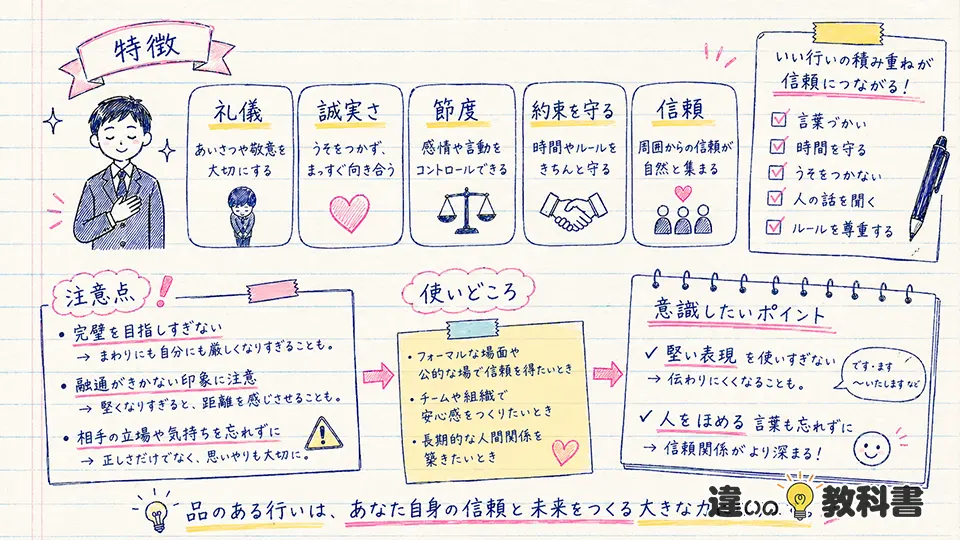 特徴
礼儀
あいさつや敬意を
大切にする
誠実さ
うそをつかず、
まっすぐ向き合う
節度
感情や言動を
コントロールできる
約束を守る
時間やルールを
きちんと守る
信頼
周囲からの信頼が
自然と集まる
いい行いの積み重ねが
信頼につながる！
言葉づかい
時間を守る
うそをつかない
人の話を聞く
ルールを尊重する
注意点
• 完璧を目指しすぎない
→ まわりにも自分にも厳しくなりすぎることも。
• 融通がきかない印象に注意
→ 堅くなりすぎると、距離を感じさせることも。
• 相手の立場や気持ちを忘れずに
→ 正しさだけでなく、思いやりも大切に。
使いどころ
• フォーマルな場面や
公的な場で信頼を得たいとき
• チームや組織で
安心感をつくりたいとき
• 長期的な人間関係を
築きたいとき
意識したいポイント
✓ 堅い表現 を使いすぎない
→ 伝わりにくくなることも。
です・ます
〜いたします など
✓ 人をほめる 言葉も忘れずに
→ 信頼関係がより深まる！
品のある行いは、あなた自身の信頼と未来をつくる大きな力
違いの教科書